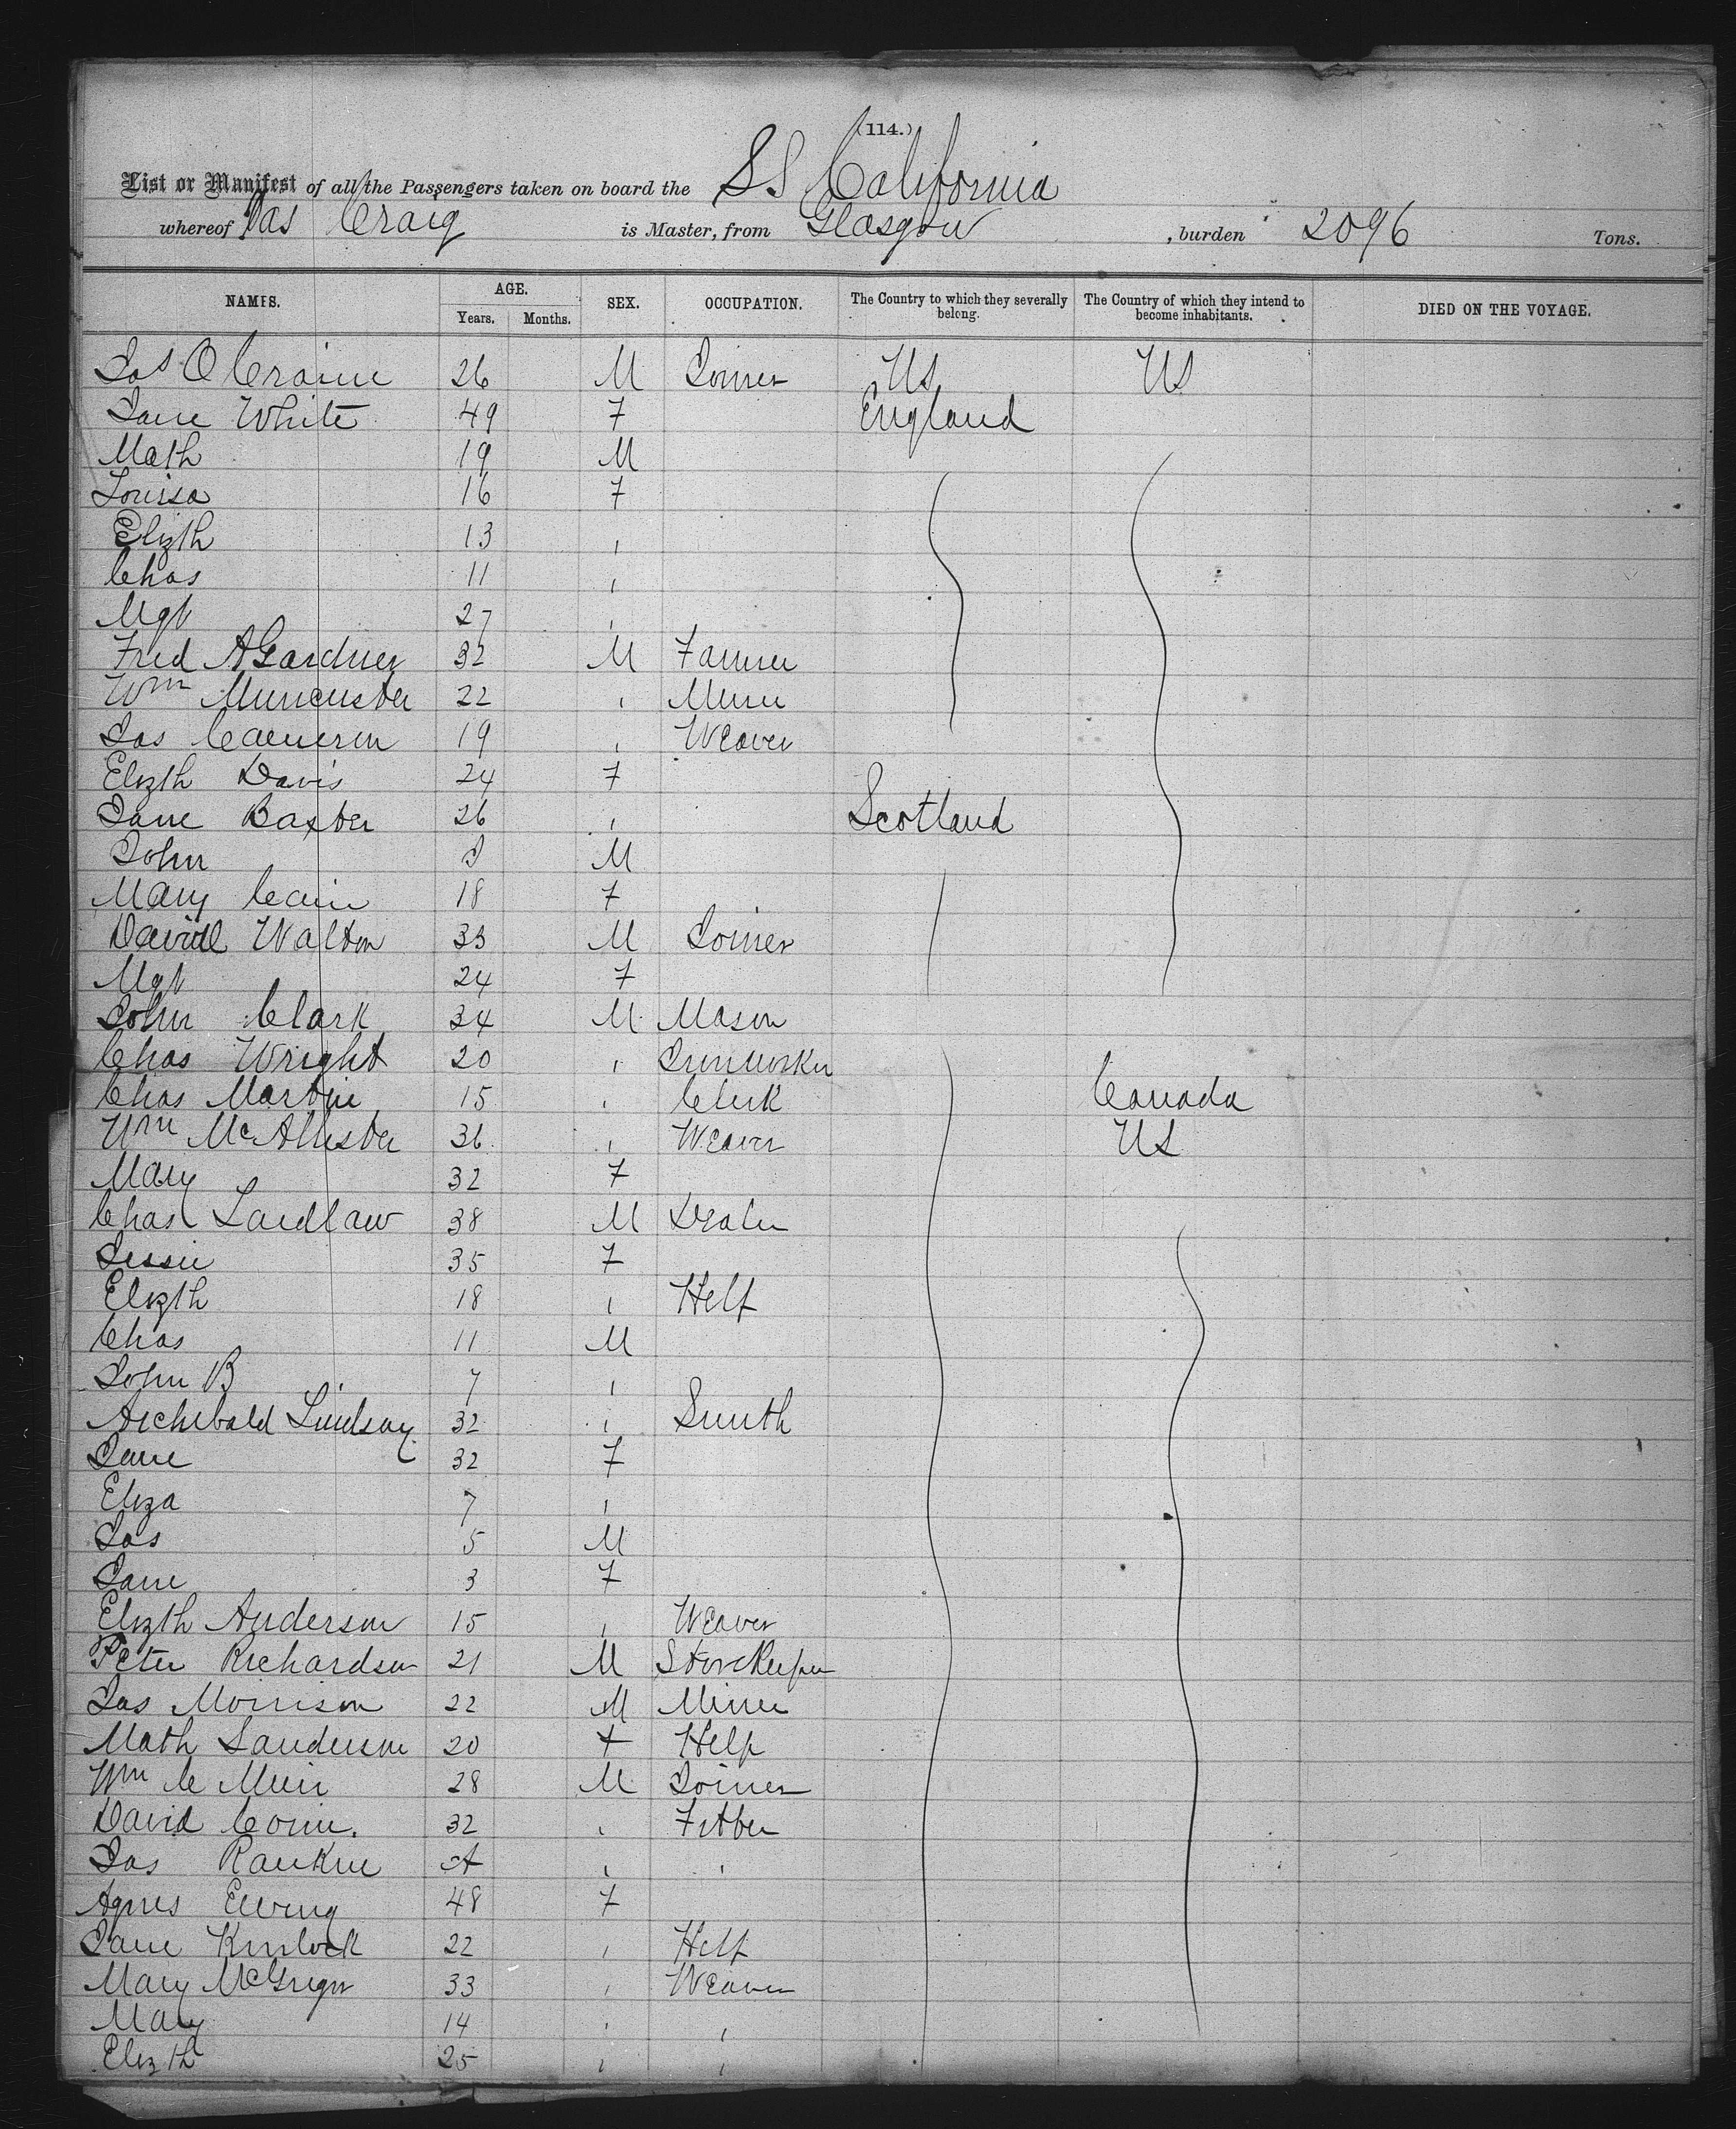 (114.)
List or Manifest of all the Passengers taken on board the SS California
whereof Jas Craig is Master, from Glasgow, burden 2096 Tons.
NAMES. AGE. SEX. OCCUPATION. The Country to which they severally belong. The Country of which they intend to become inhabitants. DIED ON THE VOYAGE.
Years. Months.
Jas O 26 M Joiner US US
Jane White 49 F England
Math 19 M
Louisa 16 F
Elizth 13 "
Chas 11 "
Mgt 27 "
Fred A Gardner 32 M Farmer
Wm Muncaster 22 " Miner
Jas Cameron 19 " Weaver
Elizth Davis 24 F
Jane Baxter 26 " Scotland
John M
Mary 18 F
David Walton 33 M Joiner
Mgt 24 F
John Clark 34 M Mason
Chas Wright 20 " Ironworker
Chas Martin 15 " Clerk Canada
Wm McAllister 36 " Weaver US
Mary 32 F
Chas Laidlaw 38 M Dealer
Jessie 35 F
Elizth 18 " Help
Chas 11 M
John B 7 "
Archibald Lindsay 32 " Smith
Jane 32 F
Eliza 7 "
Jas 5 M
Jane 3 F
Elizth Anderson 15 " Weaver
Peter Richardson 21 M Storekeeper
Jas Morrison 22 M Miner
Math Sanderson 20 F Help
Wm C Muir 28 M Joiner
David 32 " Fitter
Jas Rankine " "
Agnes Ewing 48 F
Jane Kinlock 22 " Help
Mary McGregor 33 " Weaver
Mary 14 " "
Elizth 25 " "